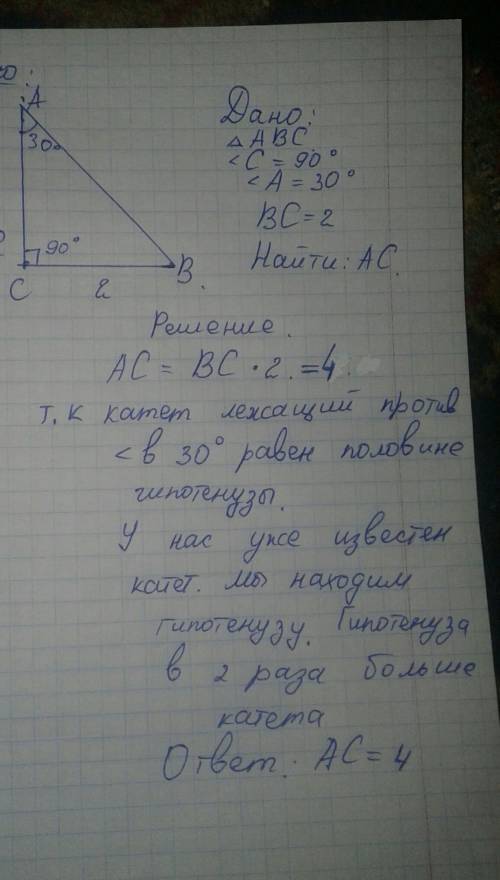 A
30°
90°
C
2
B.
Дано:
△ ABC.
<C = 90°
<A = 30°
BC = 2
Найти: AC.
Решение.
AC = BC • 2. = 4
т.к катет лежащий против
< в 30° равен половине
гипотенузы.
У нас уже известен
катет. мы находим
гипотенузу. Гипотенуза
в 2 раза больше
катета
Ответ: AC = 4